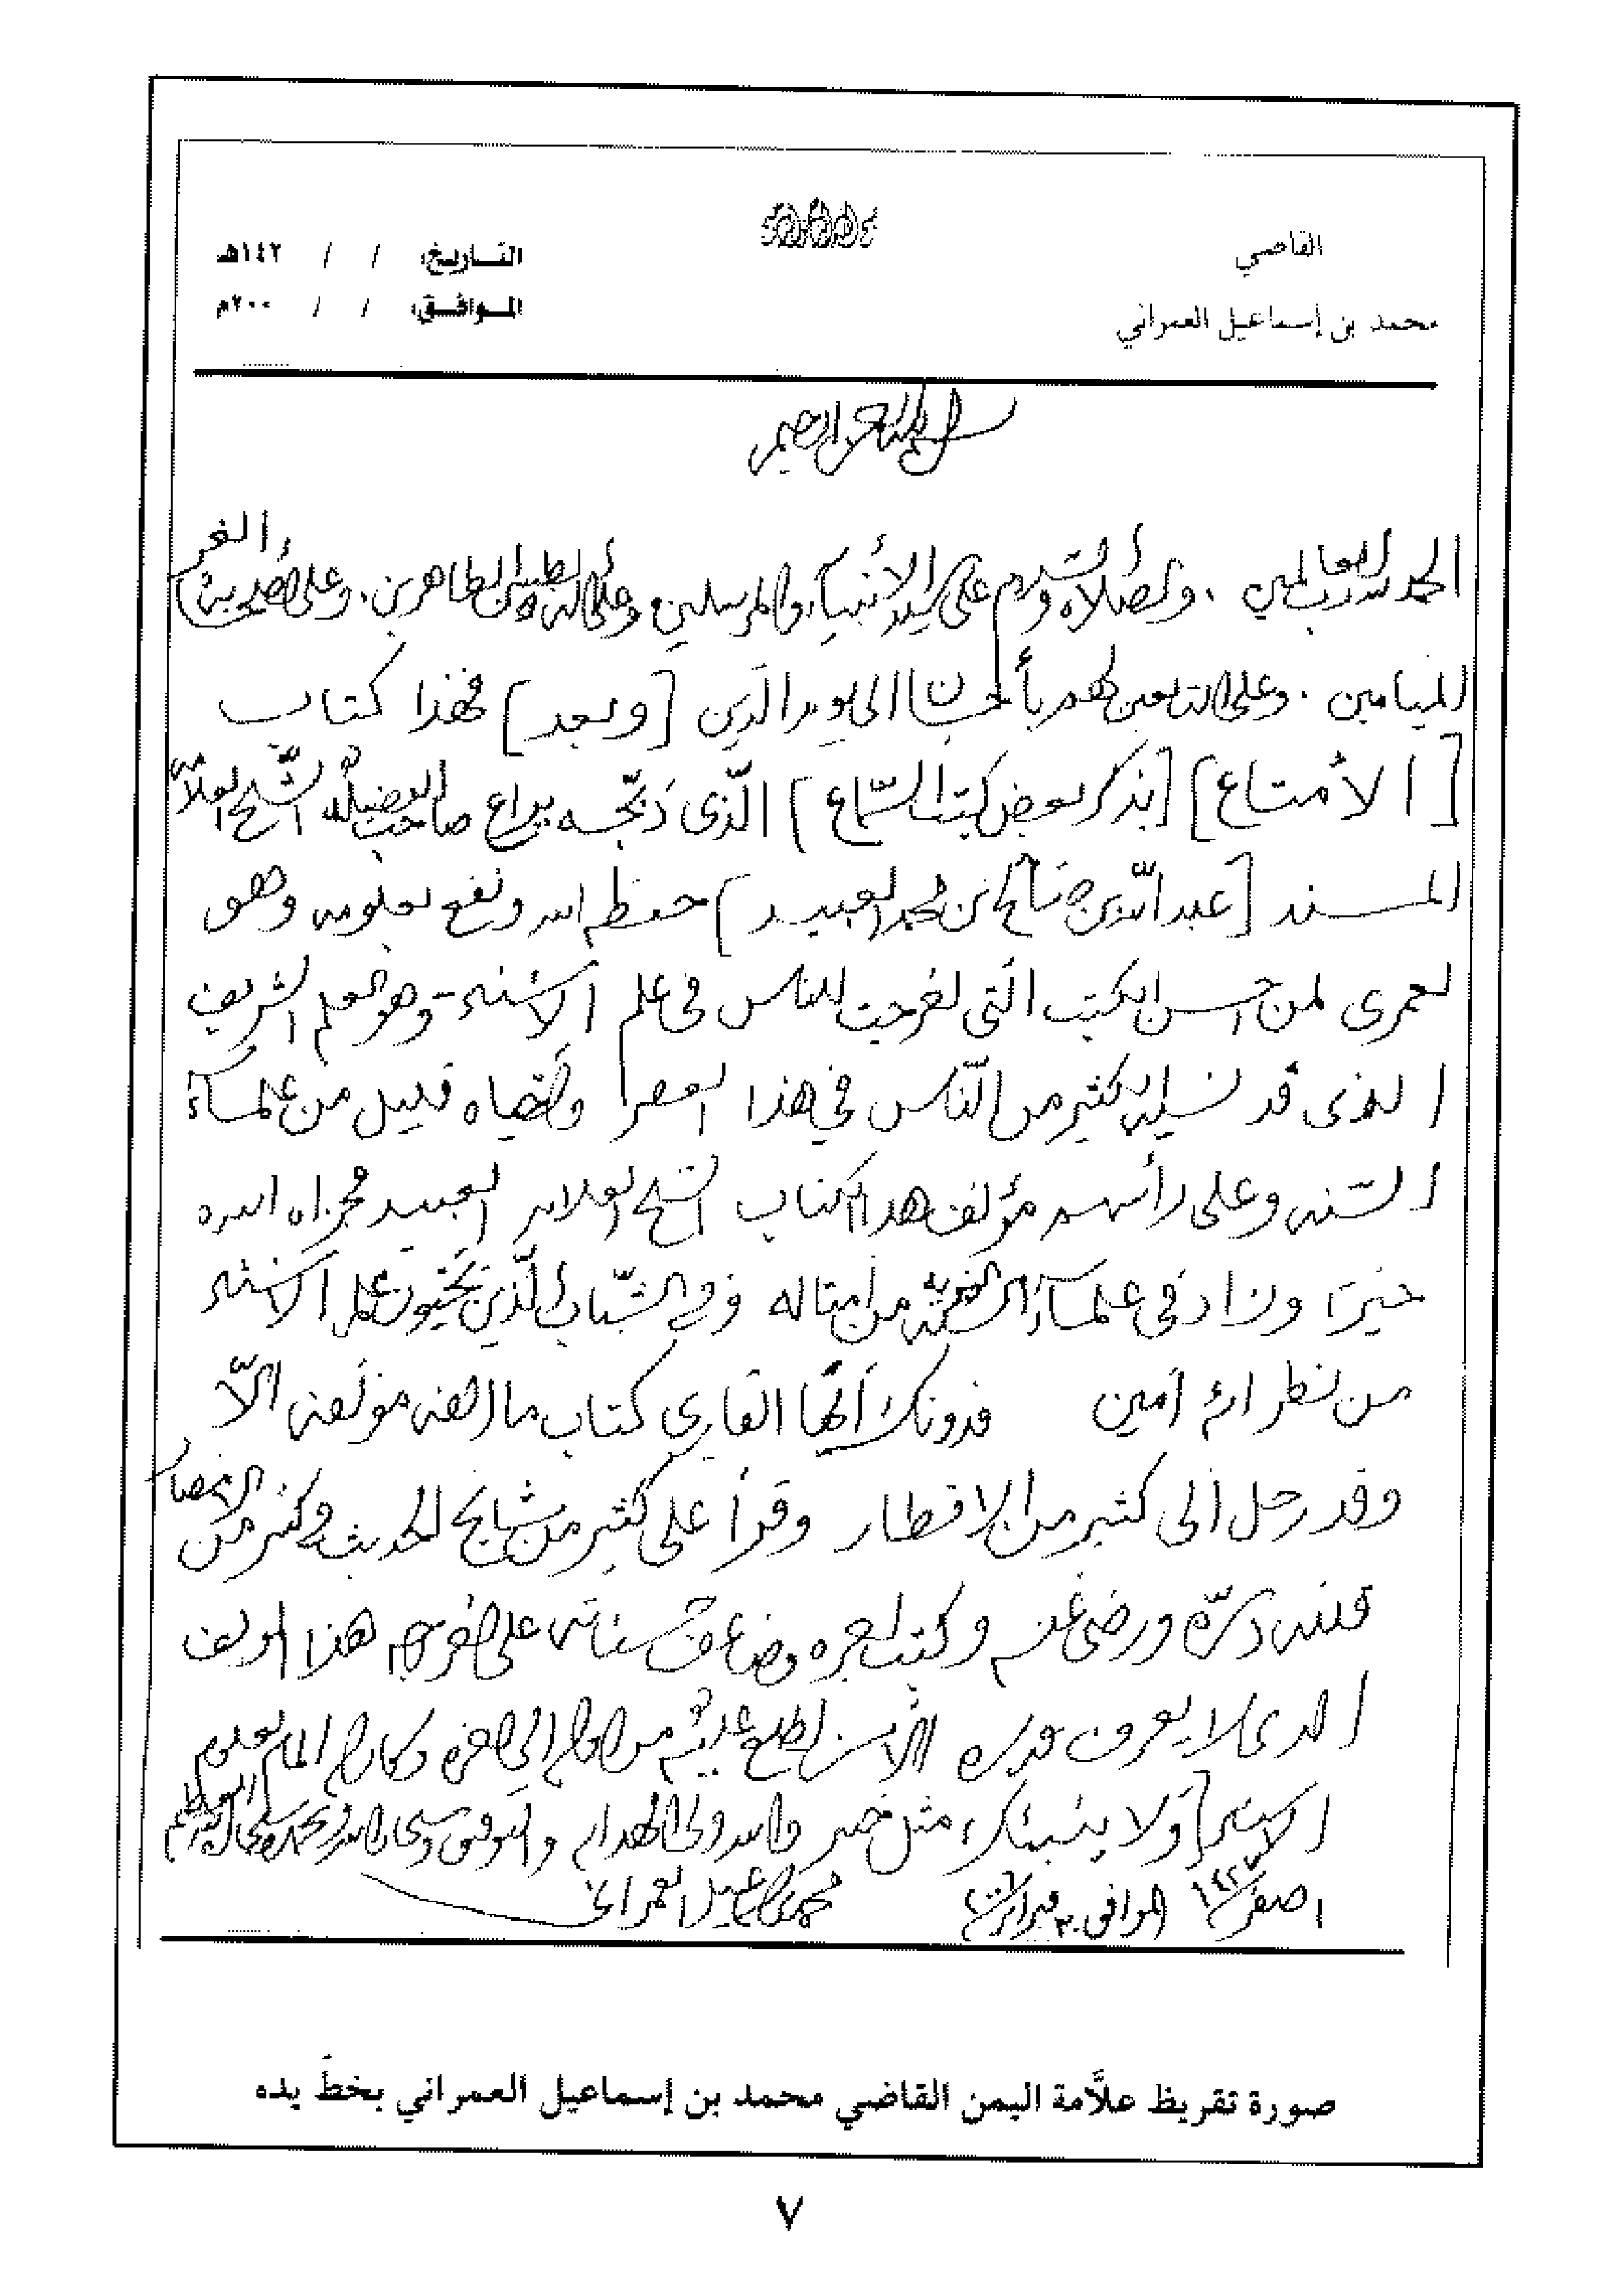 القاضي
محمد بن إسماعيل العمراني
التاريخ: / / ١٤٢هـ
الموافق: / / ٢٠٠م
بسم الله الرحمن الرحيم
الحمد لله رب العالمين . والصلاة والسلام على سيد الأنبياء والمرسلين وعلى آله الطيبين الطاهرين . وعلى أصحابه الغر
الميامين . وعلى التابعين لهم بأحسان الى يوم الدين [وبعد] فهذا كتاب
[الأمتاع] [بذكر بعض كتب السماع] الّذى دبّجه يراع صاحب الفضيله الشّيخ العلاّمه
المسند [عبد اللّه بن صالح بن محمد العبيد] حفظه الله ونفع بعلومه وهو
لعمرى لمن احسن الكتب الّتى اخرجت للناس فى علم الأسناد وهو العلم الشريف
الذى قد نسيه الكثير من النّاس في هذا العصر وأحياه قليل من علماء
السّنه وعلى رأسهم مؤلف هذا الكتاب الشيخ العلامه العبيد فجزاه الله
خيرا وزاد فى علماء من أمثاله وفي الشّباب الّذين يحبّون علم الاسناد
من نظرائه آمين فدونك أيّها القارى كتاب ما ألفه مؤلفه الاّ
وقد رحل الى كثير من الاقطار وقرأ على كثير من مشايخ الحديث وكثير من
فلله درّه ورضى عنه وكتب أجره وضاعف حسناته على هذا المؤلف
الذى لا يعرف قدره الاّ من اطلع عليه من أوله الى آخره
ولا ينبئك مثل خبير والله ولى الهدايه والتوفيق
صفر ١٤٢٧ الموافق فبراير ٢٠٠٦ محمد بن إسماعيل العمراني
صورة تقريظ علاَّمة اليمن القاضي محمد بن إسماعيل العمراني بخطّ يده
٧